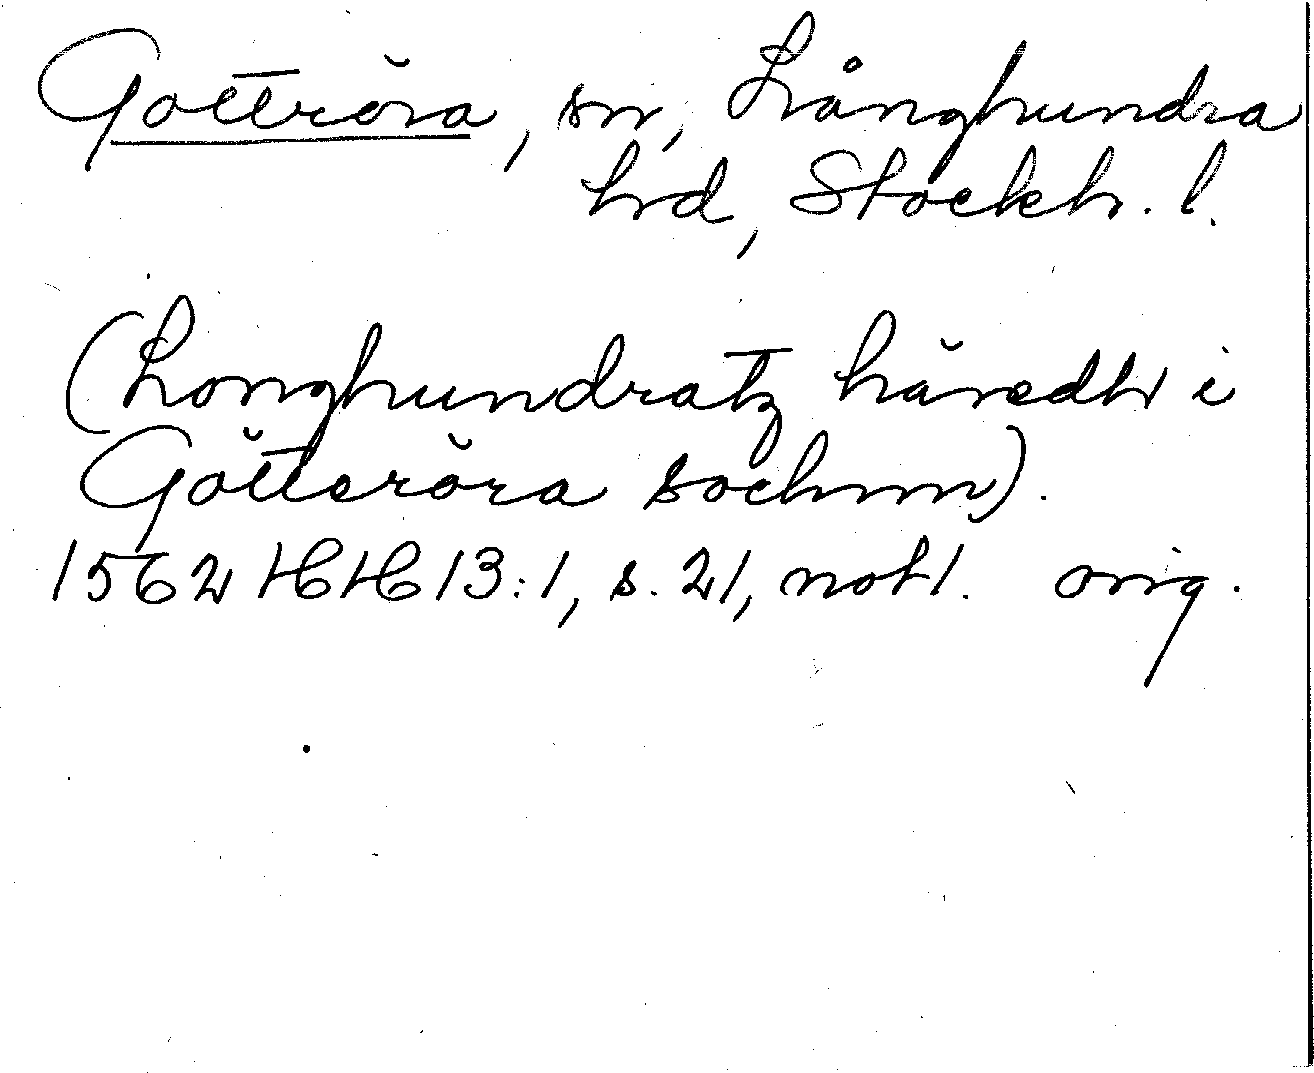 Gottröra, sn, Långhundra
hd, Stockh. l.
(Longhundratz häredh i
Götteröra sochnn).
1562 HH 13:1, s. 21, not 1. orig.